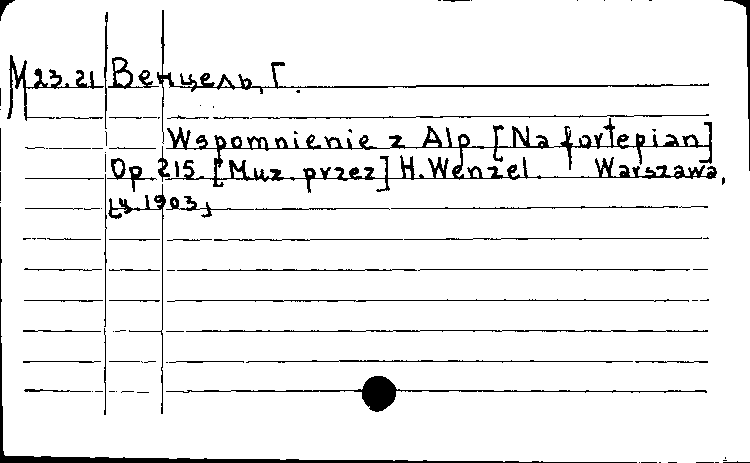 М 23.21 Венцель, Г.
Wspomnienie z Alp. [Na fortepian]
Op. 215. [Muz. przez] H. Wenzel. Warszawa,
[ц. 1903]